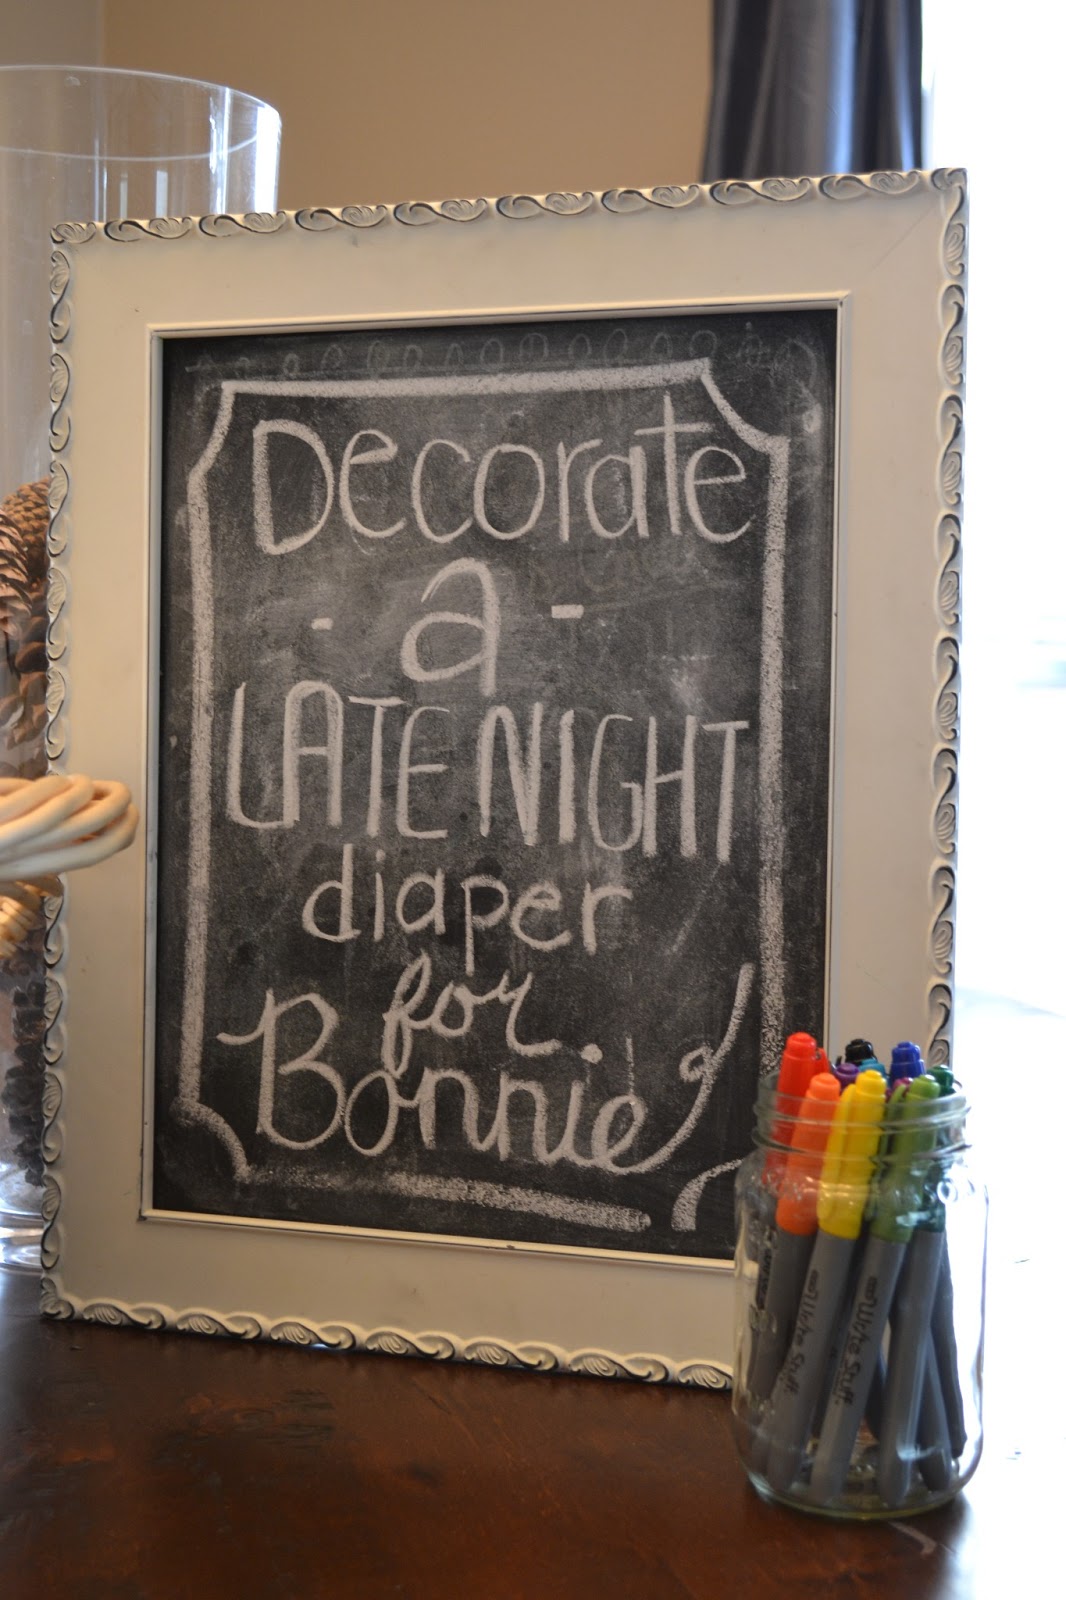 Decorate
- a -
LATE NIGHT
diaper
for
Bonnie
Write Stuff
Write Stuff.